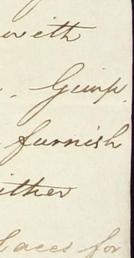 with
. Gimp
furnish
ither
laces for